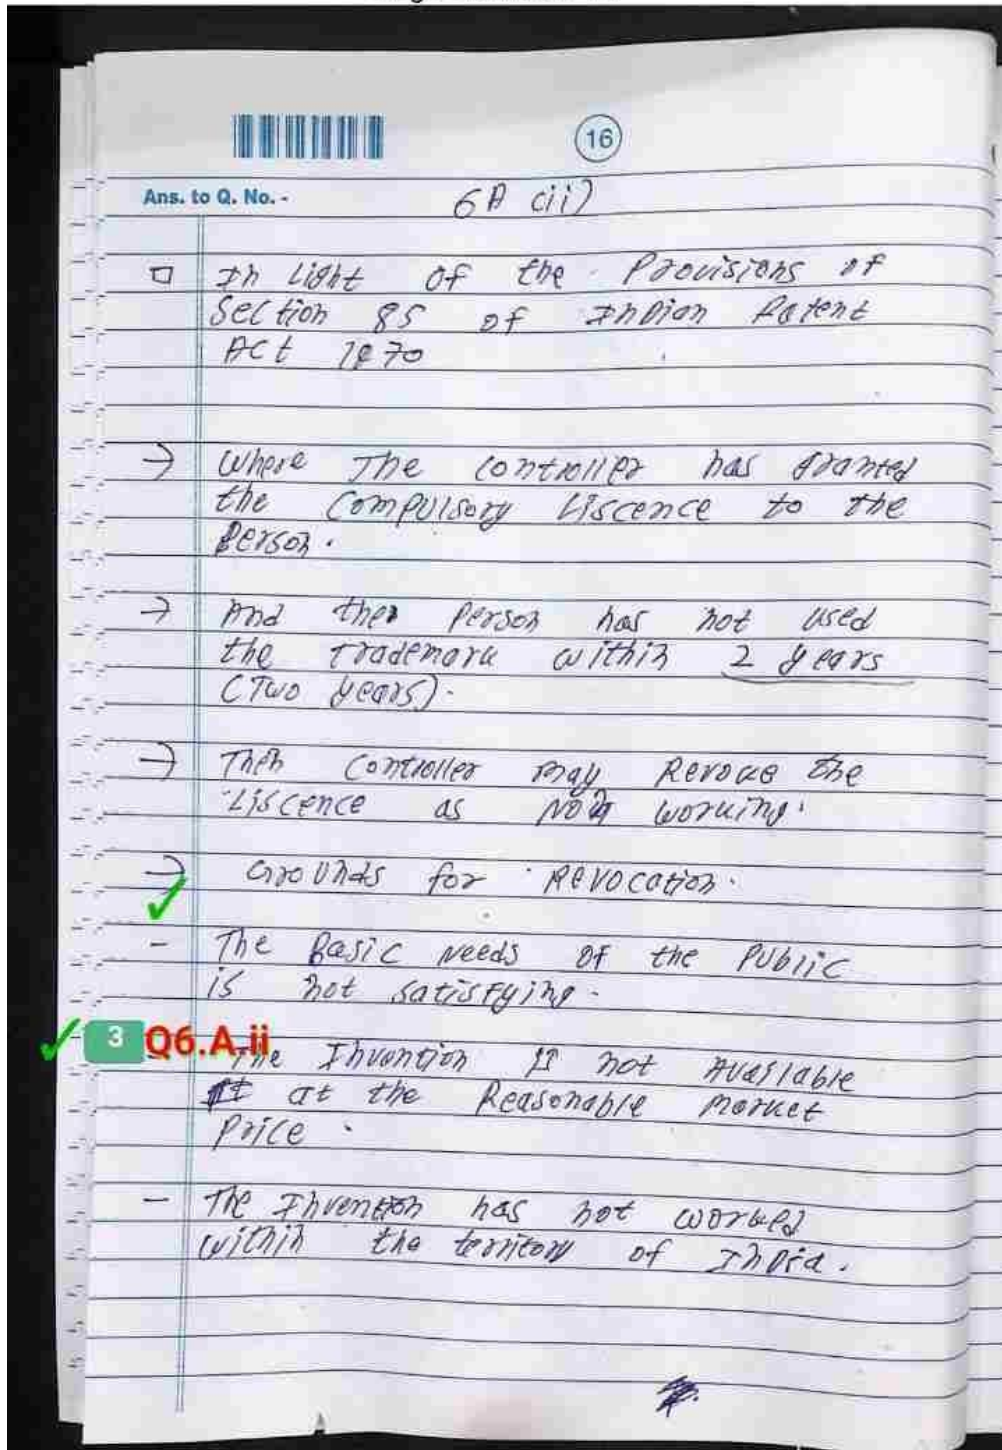 16
Ans. to Q. No. -
6A (ii)
In Light of the Provisions of
Section 85 of Indian Patent
Act 1970
→ Where The Controller has granted
the Compulsory Liscence to the
Person.
→ And the Person has not used
the Trademark within 2 years
(Two years).
→ Then Controller may Revoke the
Liscence as Non working.
→ Grounds for Revocation.
- The Basic Needs of the Public
is not satisfying.
3 Q6.A.ii
The Invention is not Available
at the Reasonable Market
Price.
- The Invention has not worked
within the territory of India.